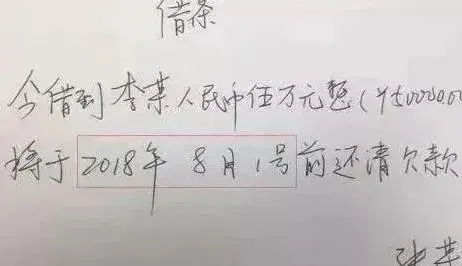 借条
今借到李某人民币伍万元整(¥50000.00
将于2018年8月1号前还清欠款
张某